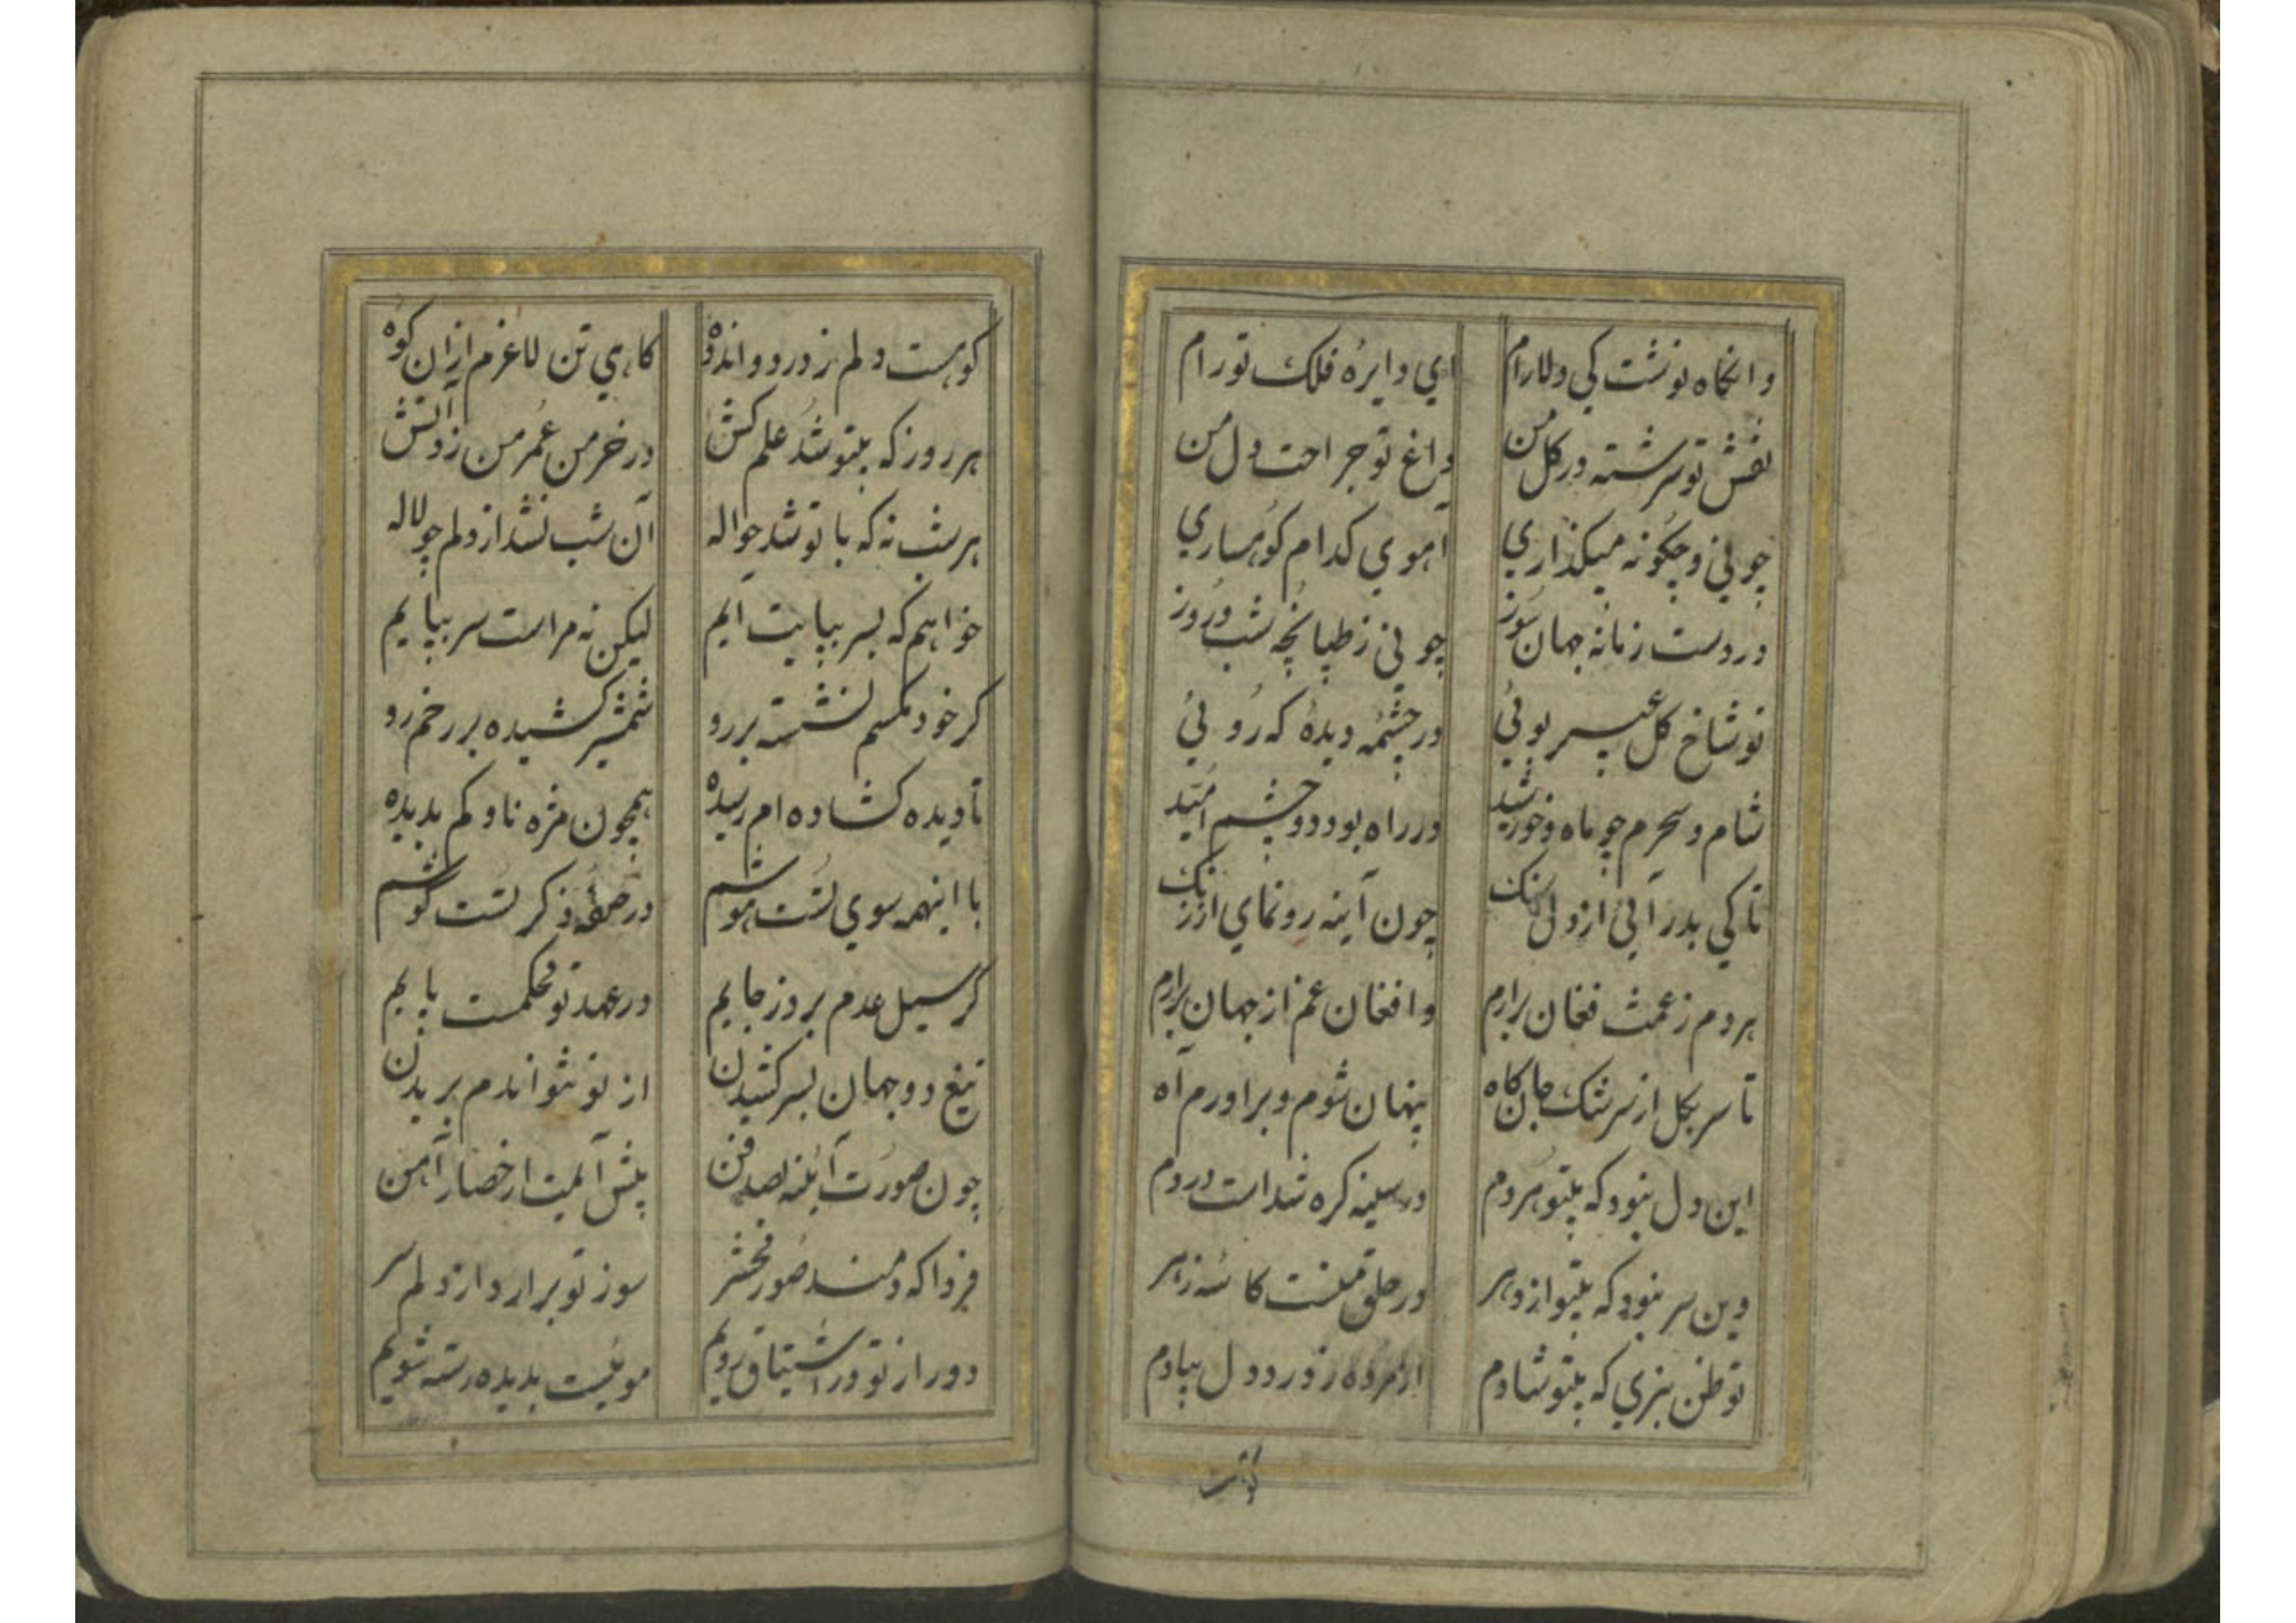 وانکاه نوشت کی دلارام ای دایرهٔ فلک تو رام
نقش تو سرشته در کل من داغ تو جراحت دل من
چونی و چکونه میکذاری آهوی کدام کوهساری
در دست زمانه جهان سوز چونی ز طپانچه شب و روز
نو شاخ کل عبیر بوئی در چشمه دیدهٔ که روئی
شام و سحرم چو ماه و خورشید در راه بود دو چشم امید
تا کی بدر آئی از دل سنک چون آینه رونمای از زنک
هر دم ز غمت فغان برارم وافغان غم از جهان برارم
تا سر بکل از سرشک جان کاه پنهان شوم و براورم آه
این دل نبود که بیتو هردم در سینه کره شداست دردم
وین سر نبود که بیتو از دهر در حلق منست کاسهٔ زهر
تو ظن نبری که بیتو شادم ز درد دل بیادم
کوهست
کوهست دلم ز درد و اندوه کاهی تن لاغرم ازان کوه
هر روز که بیتو شد علم کش در خرمن عمر من زد آتش
هر شب نه که با تو شد حواله آن شب نشد از دلم چو لاله
خواهم که بسر بپایت آیم لیکن نه مراست سر بپایم
کر خود مکسم نشسته بر رو شمشیر کشیده بر رخم رو
تا دیده کشاده ام رسیده همچون مژه ناوکم بدیده
با اینهمه سوی تست هوشم در حلقهٔ ذکر تست کوشم
کر سیل عدم برد ز جایم در عهد تو محکمست پایم
تیغ دو جهان بسر کشیدن از تو نتواندم بریدن
چون صورت آینه بصد فن پیش آمیت از حصار آهن
فردا که دمند صور محشر سوز تو برارد از دلم سر
دور از تو در اشتیاق رویم موئیست بدیده رسته شویم